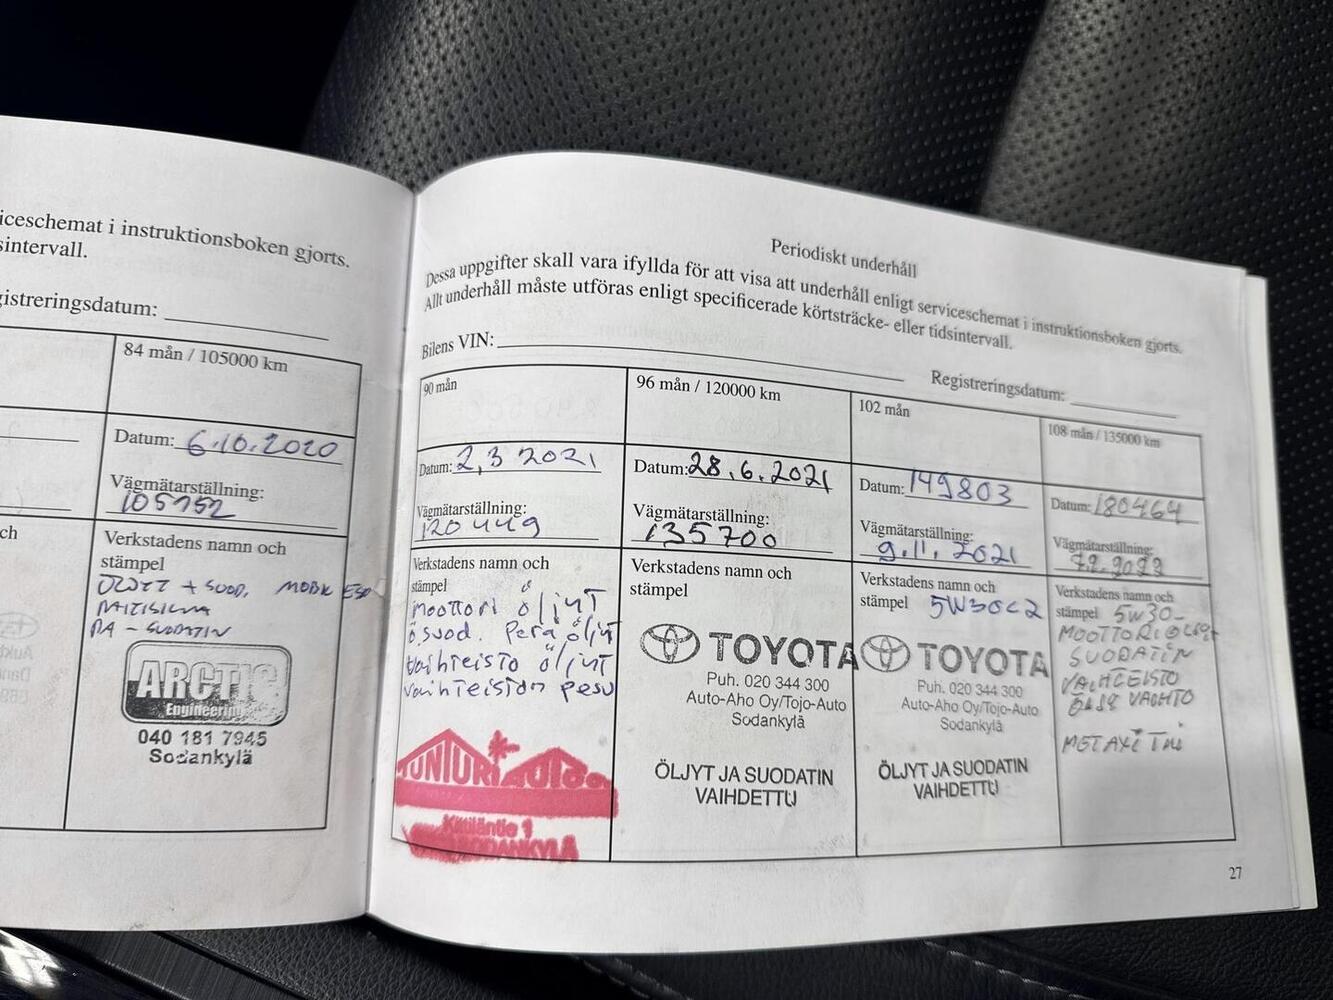 iceschemat i instruktionsboken gjorts.
sintervall.
gistreringsdatum:
84 mån / 105000 km
Datum: 6.10.2020
Vägmätarställning:
105752
ch
Verkstadens namn och
stämpel
+ SUOD.
RAITISILMA
PA-SUODATIN
ARCTIC
Engineering
040 181 7945
Sodankylä
Periodiskt underhåll
Dessa uppgifter skall vara ifyllda för att visa att underhåll enligt serviceschemat i instruktionsboken gjorts.
Allt underhåll måste utföras enligt specificerade körtsträcke- eller tidsintervall.
Bilens VIN:
Registreringsdatum:
90 mån
Datum: 2,3 2021
Vägmätarställning:
120449
Verkstadens namn och
stämpel
moottori öljyt
ö suod. Perä öljyt
vaihteisto öljyt
vaihteiston pesu
TUNTURI Auto
Kittiläntie 1
SODANKYLÄ
96 mån / 120000 km
Datum: 28.6.2021
Vägmätarställning:
135700
Verkstadens namn och
stämpel
TOYOTA
Puh. 020 344 300
Auto-Aho Oy/Tojo-Auto
Sodankylä
ÖLJYT JA SUODATIN
VAIHDETTU
102 mån
Datum: 149803
Vägmätarställning:
9.11.2021
Verkstadens namn och
stämpel 5W30C2
TOYOTA
Puh. 020 344 300
Auto-Aho Oy/Tojo-Auto
Sodankylä
ÖLJYT JA SUODATIN
VAIHDETTU
108 mån / 135000 km
Datum: 180464
Vägmätarställning:
Verkstadens namn och
stämpel 5W30-
MOOTTORIÖLJY
SUODATIN
VAIHTEISTO
VAIHTO
27